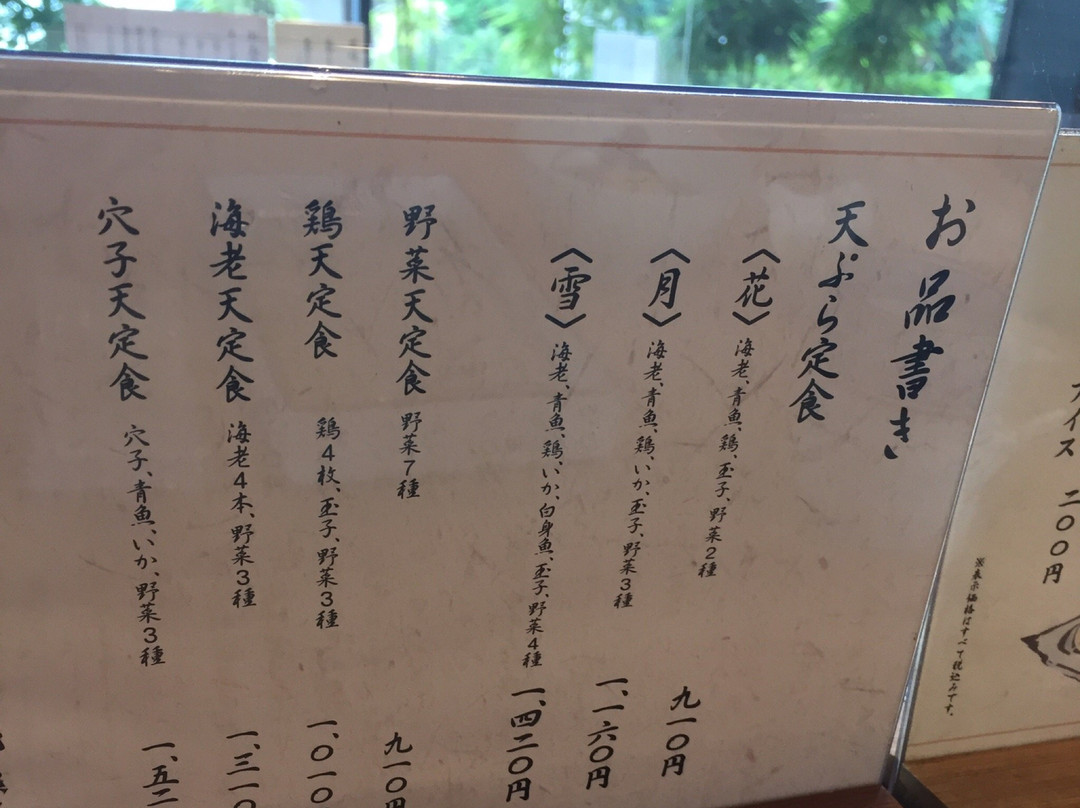 お品書き
天ぷら定食
〈花〉 海老、青魚、鶏、玉子、野菜2種 九一〇円
〈月〉 海老、青魚、鶏、いか、玉子、野菜3種 一、一六〇円
〈雪〉 海老、青魚、鶏、いか、白身魚、玉子、野菜4種 一、四二〇円
野菜天定食 野菜7種 九一〇円
鶏天定食 鶏4枚、玉子、野菜3種 一、〇一〇
海老天定食 海老4本、野菜3種 一、三一〇
穴子天定食 穴子、青魚、いか、野菜3種 一、五二
アイス 二〇〇円
※表示価格はすべて税込みです。